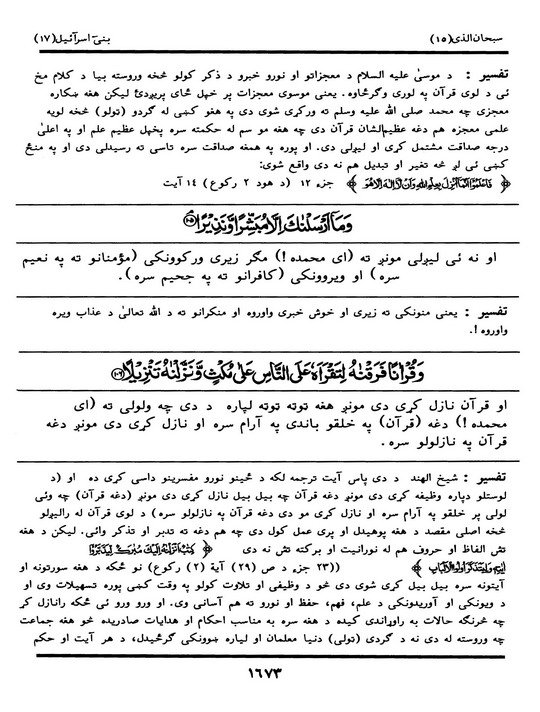 سبحان الذی(۱۵) بنیٓ اسرآئیل(۱۷)
تفسیر : د موسیٰ علیه السلام د معجزاتو او نورو خبرو د ذکر کولو څخه وروسته بیا د کلام مخ
ئی د لوی قرآن په لوری وګرځاوه. یعنی موسوی معجزات پر خپل ځای پریږدئ لیکن هغه ښکاره
معجزی چه محمد صلی الله علیه وسلم ته ورکړی شوی دی په هغو کښی له ګردو (تولو) څخه لویه
علمی معجزه هم دغه عظیم‌الشان قرآن دی چه هغه مو سم له حکمته سره پخپل عظیم علم او په اعلیٰ
درجه صداقت مشتمل کړی او لیږلی دی. او پوره په همغه صداقت سره تاسی ته رسیدلی دی او په منځ
کښی ئی لږ څه تغیر او تبدیل هم نه دی واقع شوی:
﴿ فَاعْلَمُوْٓا اَنَّمَآ اُنْزِلَ بِعِلْمِ اللهِ وَاَنْ لَّآ اِلٰهَ اِلَّا هُوَ ﴾ جزء ۱۲ (د هود ۲ رکوع) ۱۴ آیت
وَمَآ اَرْسَلْنٰكَ اِلَّا مُبَشِّرًا وَّنَذِيْرًا ۝۱۰۵
او نه ئی لیږلی مونږ ته (ای محمده !) مګر زیری ورکوونکی (مؤمنانو ته په نعیم
سره) او ویروونکی (کافرانو ته په جحیم سره).
تفسیر : یعنی منونکی ته زیری او خوش خبری واوروه او منکرانو ته د الله تعالیٰ د عذاب ویره
واوروه !.
وَقُرْاٰنًا فَرَقْنٰهُ لِتَقْرَاَهٗ عَلَى النَّاسِ عَلٰى مُكْثٍ وَّنَزَّلْنٰهُ تَنْزِيْلًا ۝۱۰۶
او قرآن نازل کړی دی مونږ هغه توته توته لپاره د دی چه ولولی ته (ای
محمده !) دغه (قرآن) په خلقو باندی په آرام سره او نازل کړی دی مونږ دغه
قرآن په نازلولو سره.
تفسیر : شیخ الهند د دی پاس آیت ترجمه لکه د ځینو نورو مفسرینو داسی کړی ده او (د
لوستلو دپاره وظیفه کړی دی مونږ دغه قرآن چه بیل بیل نازل کړی دی مونږ (دغه قرآن) چه وئی
لولی پر خلقو په آرام سره او نازل کړی مو دی دغه قرآن په نازلولو سره) د لوی قرآن له رالیږلو
څخه اصلی مقصد د هغه پوهیدل او پری عمل کول دی چه هم دغه ته تدبر او تذکر وائی. لیکن د هغه
تش الفاظ او حروف هم له نورانیت او برکته تش نه دی ﴿ كِتٰبٌ اَنْزَلْنٰهُ اِلَيْكَ مُبٰرَكٌ لِّيَدَّبَّرُوْٓا
اٰيٰتِهٖ وَلِيَتَذَكَّرَ اُولُوا الْاَلْبَابِ ﴾ ((۲۳ جزء د ص (۲۹) آیة (۲) رکوع) نو ځکه د هغه سورتونه او
آیتونه سره بیل بیل کړی شوی دی څو د وظیفی او تلاوت کولو په وقت کښی پوره تسهیلات وی او
د ویونکی او آوریدونکی د علم، فهم، حفظ او نورو ته هم آسانی وی. او ورو ورو ئی ځکه رانازل کړ
چه څرنګه حالات به راوړاندی کیده د هغه سره به مناسب احکام او هدایات صادریده څو هغه جماعت
چه وروسته له دی نه د ګردی (تولی) دنیا معلمان او لیاره ښوونکی ګرځیدل، د هر آیت او حکم
۱۶۷۳